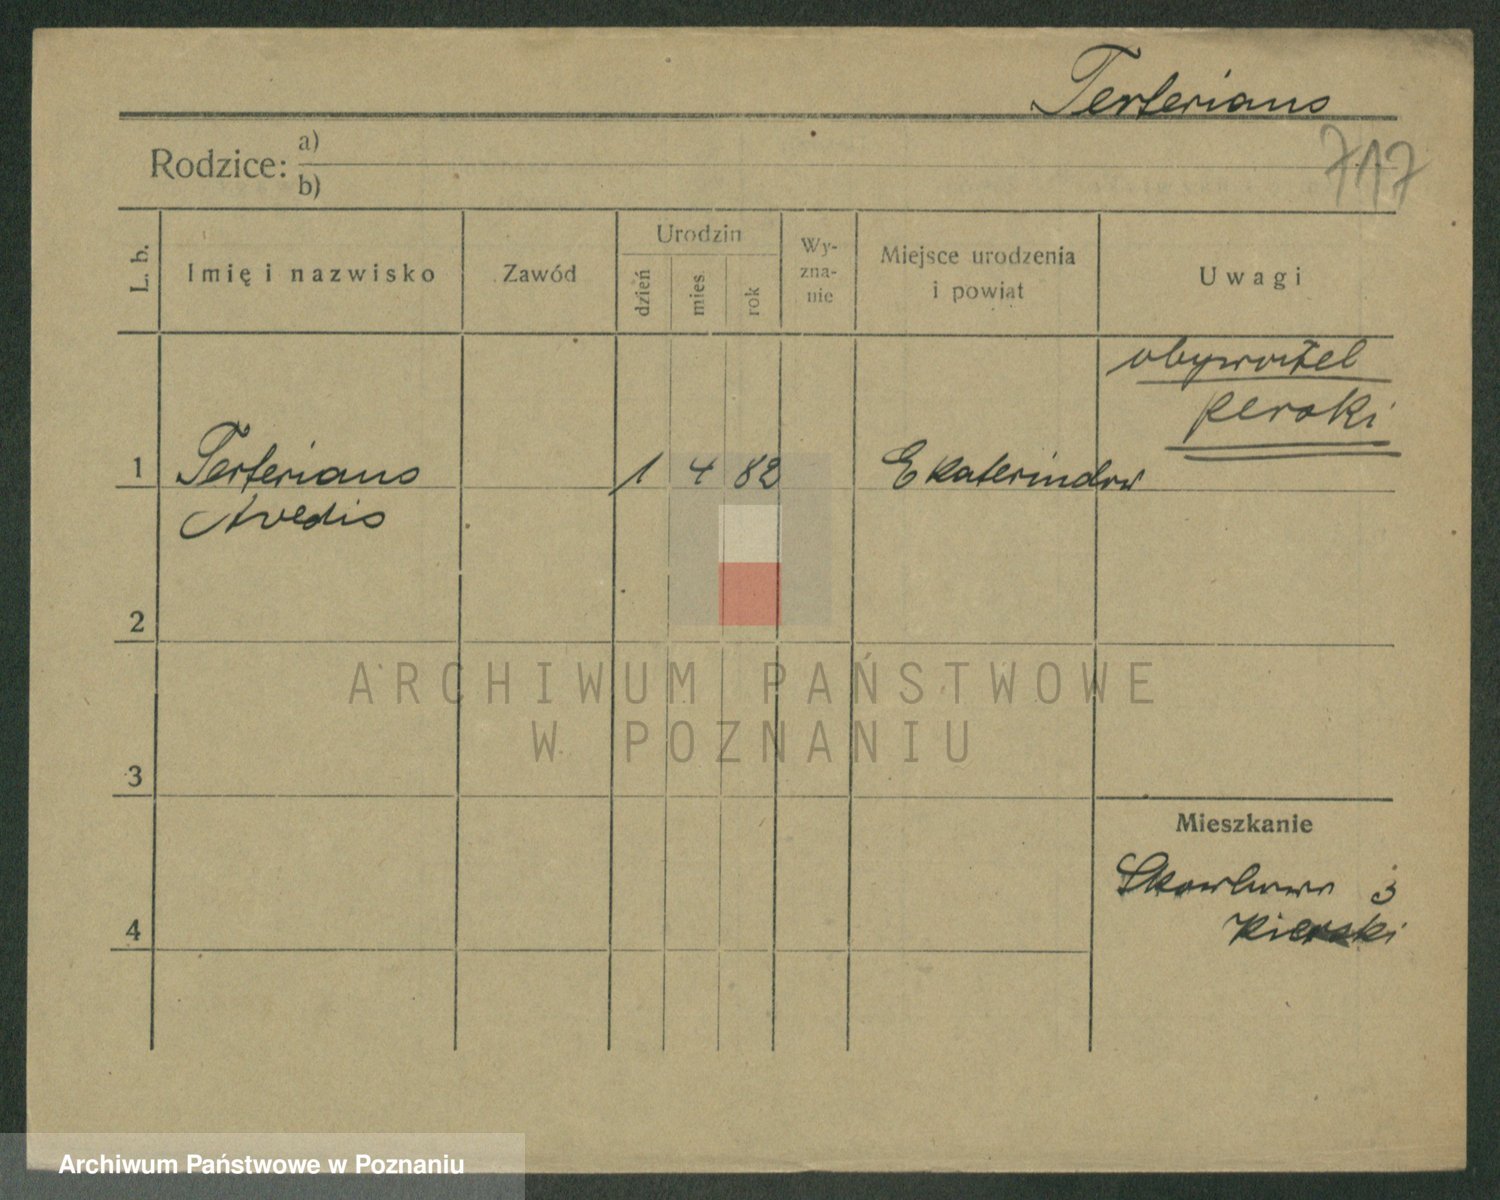 Terterians
717
Rodzice: a)
b)
L. b.
Imię i nazwisko
Zawód
Urodzin
dzień
mies
rok
Wy-
zna-
nie
Miejsce urodzenia
i powiat
Uwagi
obywatel
perski
1 Terterians 1 4 82
Avedis
2
3
4
Mieszkanie
3
ARCHIWUM PAŃSTWOWE
W POZNANIU
Archiwum Państwowe w Poznaniu